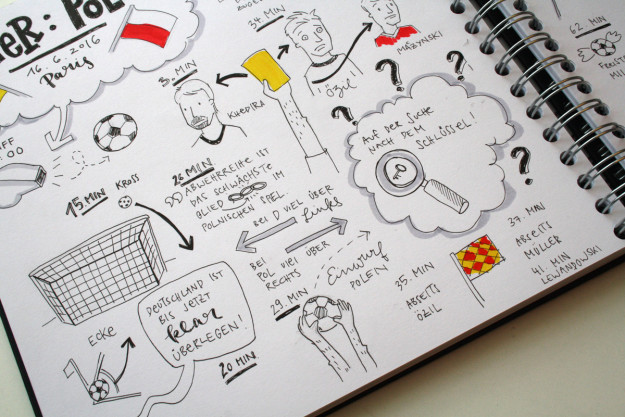 ER: POL
16.6.2016
Paris
34 MIN
3. MIN
KHEDIRA
ÖZIL
MĄZYNSKI
62 MIN
15. MIN KROSS
26 MIN.
ABWEHRREIHE IST
DAS SCHWÄCHSTE
GLIED IM
POLNISCHEN SPIEL
AUF DER SUCHE
NACH DEM
SCHLÜSSEL!
BEI D VIEL ÜBER
links
BEI
POL VIEL ÜBER
RECHTS
29 MIN
Einwurf
POLEN
DEUTSCHLAND IST
BIS JETZT
klar
ÜBERLEGEN!
20 MIN
ECKE
35. MIN
ABSEITS
ÖZIL
37. MIN
ABSEITS
MÜLLER
41 MIN
LEWANDOWSKI